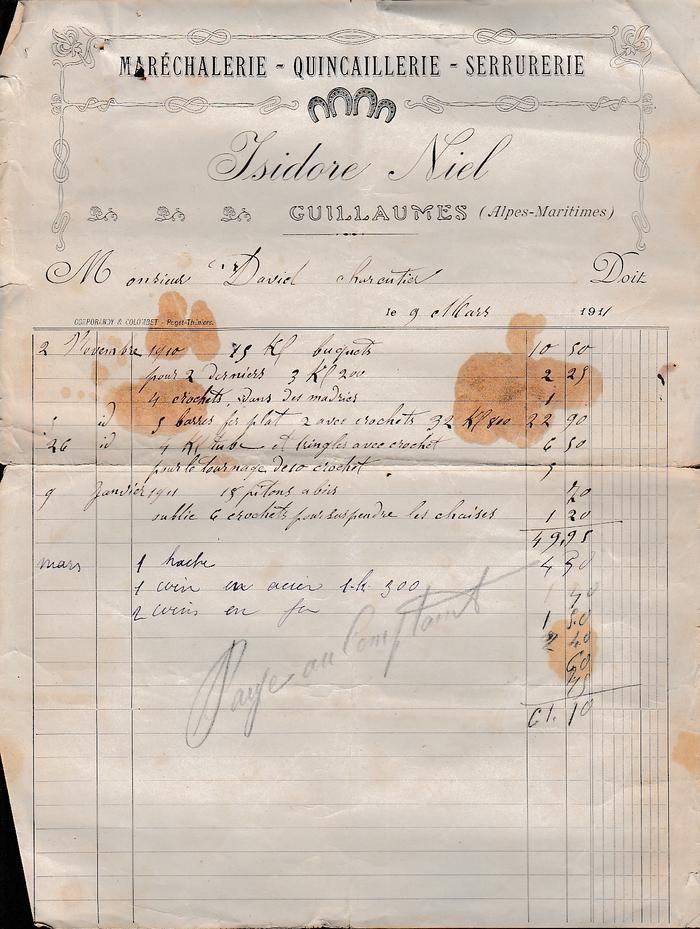 MARÉCHALERIE - QUINCAILLERIE - SERRURERIE
Isidore Niel
GUILLAUMES (Alpes-Maritimes)
Monsieur David charentier Doit
le 9 Mars 1911
CORPORANDY & COLOMBET - Puget-Théniers.
2 Novembre 1910 15 Kl buquets 10 50
pour 2 derniers 3 Kl 200 2 25
4 crochets dans des madriers 1
id 5 barres fer plat 2 avec crochets 32 Kl 800 22 90
26 id 4 Kl tube et tringles avec crochet 6 50
pour le tournage de 10 crochet 5
9 Janvier 1911 15 pitons a bois 70
oublie 6 crochets pour suspendre les chaises 1 20
49,95
mars 1 hache 4 50
1 coin en acier 1 k 300
2 coins en fer 1 50
2 40
60
45
61. 10
Paye au Comptant